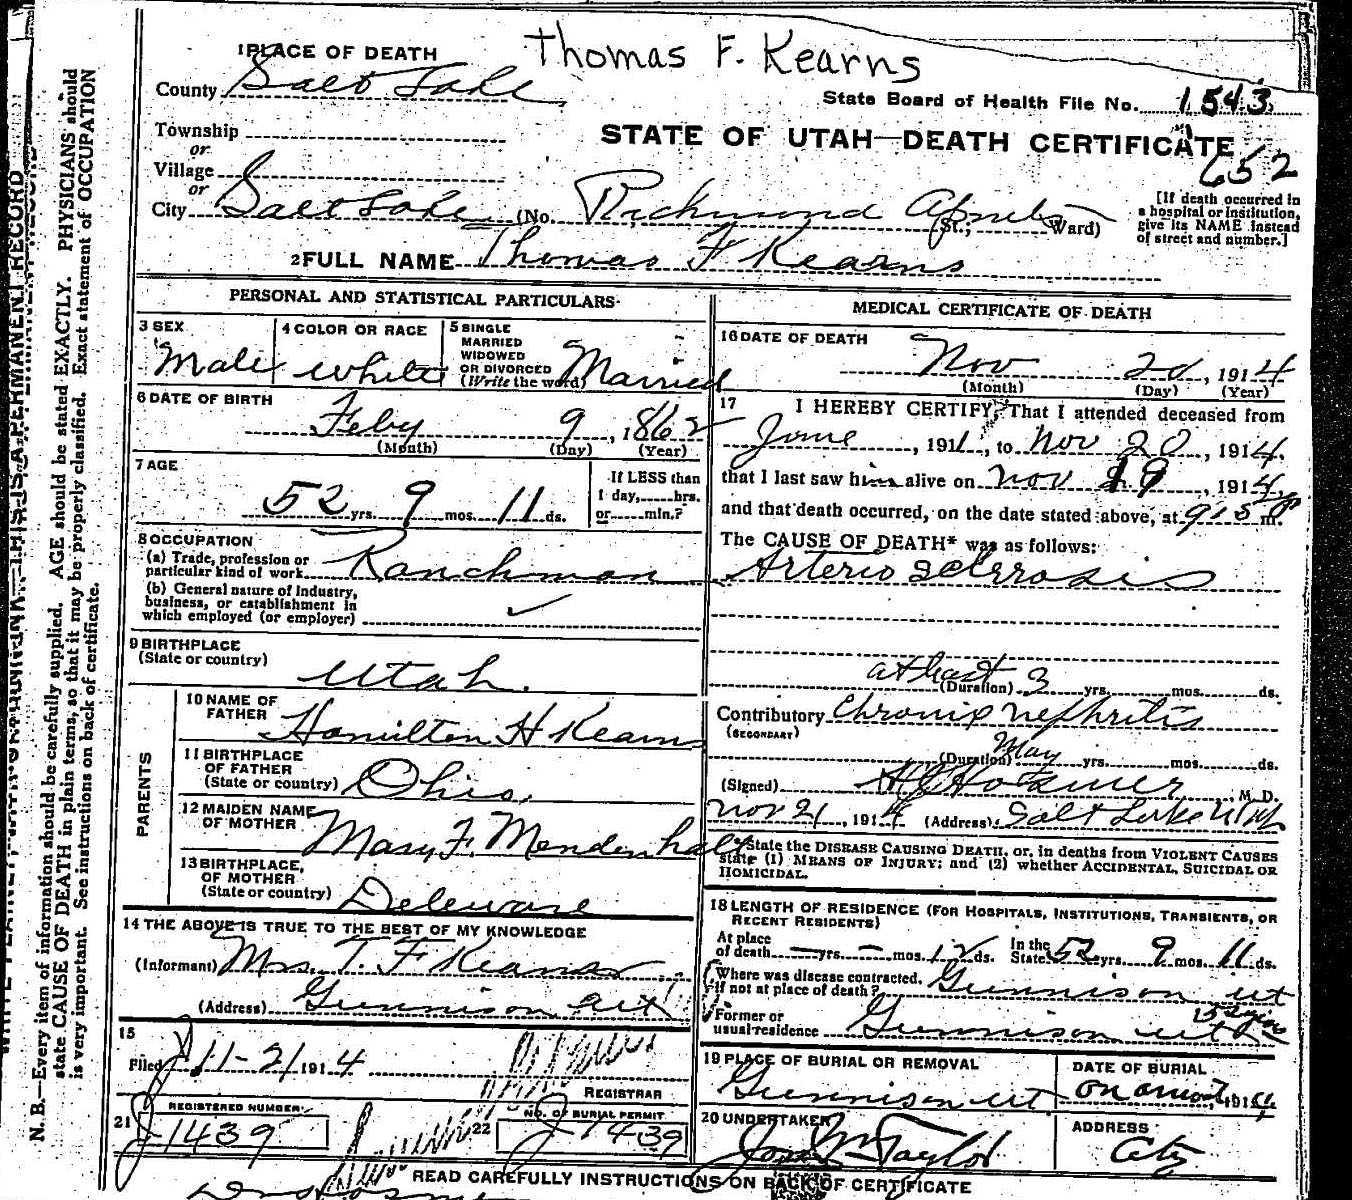 Thomas F. Kearns
1 PLACE OF DEATH
County Salt Lake
State Board of Health File No. 1543
Township
or
STATE OF UTAH—DEATH CERTIFICATE
652
Village
or
City Salt Lake (No. Richmond Apmts (St.; Ward)
[If death occurred in a hospital or institution, give its NAME instead of street and number.]
2 FULL NAME Thomas F Kearns
PERSONAL AND STATISTICAL PARTICULARS
3 SEX
Male
4 COLOR OR RACE
white
5 SINGLE MARRIED WIDOWED OR DIVORCED (Write the word) Married
6 DATE OF BIRTH
Feby 9, 1862
(Month) (Day) (Year)
7 AGE
52 yrs. 9 mos. 11 ds.
If LESS than 1 day, hrs. or min.?
8 OCCUPATION
(a) Trade, profession or particular kind of work Ranchman
(b) General nature of Industry, business, or establishment in which employed (or employer)
9 BIRTHPLACE
(State or country)
Utah.
PARENTS
10 NAME OF FATHER Hamilton H Kearns
11 BIRTHPLACE OF FATHER (State or country) Ohio.
12 MAIDEN NAME OF MOTHER Mary F. Mendenhall
13 BIRTHPLACE, OF MOTHER (State or country) Deleware
14 THE ABOVE IS TRUE TO THE BEST OF MY KNOWLEDGE
(Informant) Mrs. T. F Kearns
(Address) Gunnison Ut
15
Filed 11-21 1914
REGISTRAR
21 REGISTERED NUMBER J 1439
22 NO. OF BURIAL PERMIT J 1439
MEDICAL CERTIFICATE OF DEATH
16 DATE OF DEATH
Nov 20, 1914
(Month) (Day) (Year)
17 I HEREBY CERTIFY, That I attended deceased from
June, 1911, to Nov 20, 1914.
that I last saw him alive on Nov 19, 1914
and that death occurred, on the date stated above, at 9:15 P m.
The CAUSE OF DEATH* was as follows:
Arterio Sclerrosis
at least
(Duration) 3 yrs. mos. ds.
Contributory Chronic nephritis
(SECONDARY)
(Duration) May yrs. mos. ds.
(Signed) M. D.
Nov 21, 1914 (Address) Salt Lake Utah
*State the DISEASE CAUSING DEATH, or, in deaths from VIOLENT CAUSES
state (1) MEANS OF INJURY; and (2) whether ACCIDENTAL, SUICIDAL OR
HOMICIDAL.
18 LENGTH OF RESIDENCE (FOR HOSPITALS, INSTITUTIONS, TRANSIENTS, OR
RECENT RESIDENTS)
At place of death — yrs. — mos. 12 ds. In the State 52 yrs. 9 mos. 11 ds.
Where was disease contracted, If not at place of death? Gunnison Ut
Former or usual residence Gunnison Ut
19 PLACE OF BURIAL OR REMOVAL
Gunnison Ut
DATE OF BURIAL
20 UNDERTAKER
Taylor
ADDRESS
City
READ CAREFULLY INSTRUCTIONS ON BACK OF CERTIFICATE
N. B.—Every item of information should be carefully supplied. AGE should be stated EXACTLY. PHYSICIANS should
state CAUSE OF DEATH in plain terms, so that it may be properly classified. Exact statement of OCCUPATION
is very important. See instructions on back of certificate.